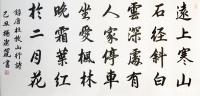 遠上寒山
石徑斜白
雲深處有
人家停車
坐愛楓林
晚霜葉紅
於二月花
唐杜牧山行詩
己丑 書